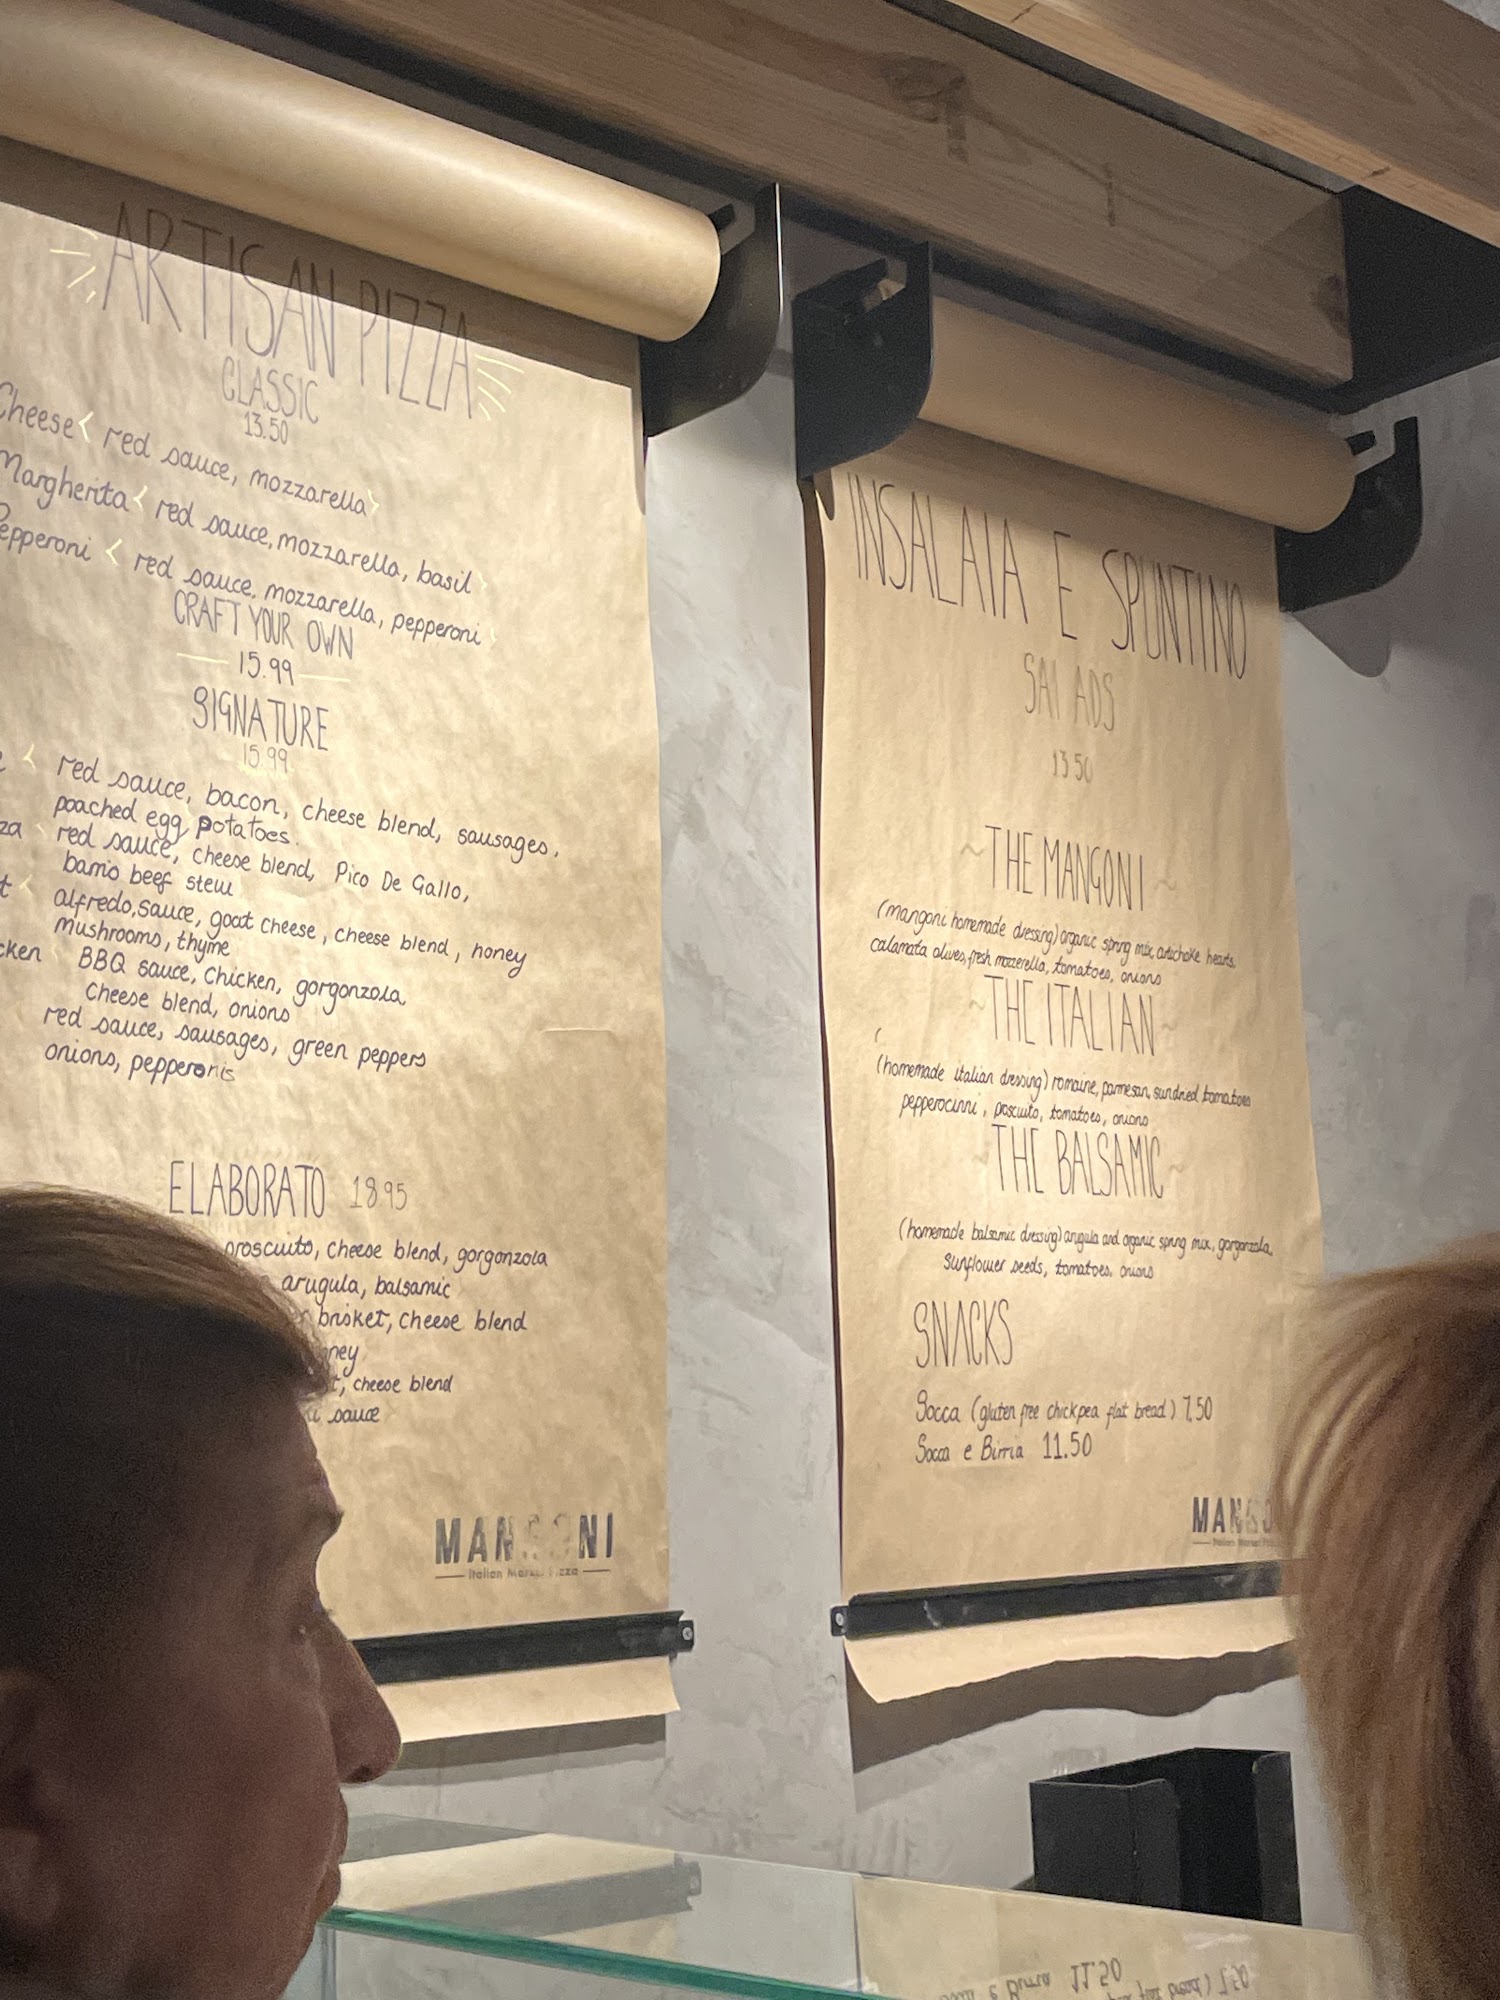 ARTISAN PIZZA
CLASSIC
13.50
Cheese red sauce, mozzarella
Margherita red sauce, mozzarella, basil
Pepperoni red sauce, mozzarella, pepperoni
CRAFT YOUR OWN
15.99
SIGNATURE
15.99
red sauce, bacon, cheese blend, sausages,
poached egg, potatoes.
red sauce, cheese blend, Pico De Gallo,
barrio beef stew
alfredo, sauce, goat cheese, cheese blend, honey
mushrooms, thyme
BBQ sauce, Chicken, gorgonzola,
cheese blend, onions
red sauce, sausages, green peppers
onions, pepperonis
ELABORATO 18.95
proscuito, cheese blend, gorgonzola
arugula, balsamic
brisket, cheese blend
, cheese blend
sauce
MANGONI
Italian Market Pizza
INSALATA E SPUNTINO
SALADS
13.50
~ THE MANGONI ~
(mangoni homemade dressing) organic spring mix, artichoke hearts,
calamata olives, fresh mozzerella, tomatoes, onions
~ THE ITALIAN ~
(homemade italian dressing) romaine, parmesan, sundried tomatoes
pepperocinni, proscuito, tomatoes, onions
~ THE BALSAMIC ~
(homemade balsamic dressing) arugula and organic spring mix, gorgonzola,
sunflower seeds, tomatoes, onions
SNACKS
Socca (gluten free chickpea flat bread) 7.50
Socca e Birria 11.50